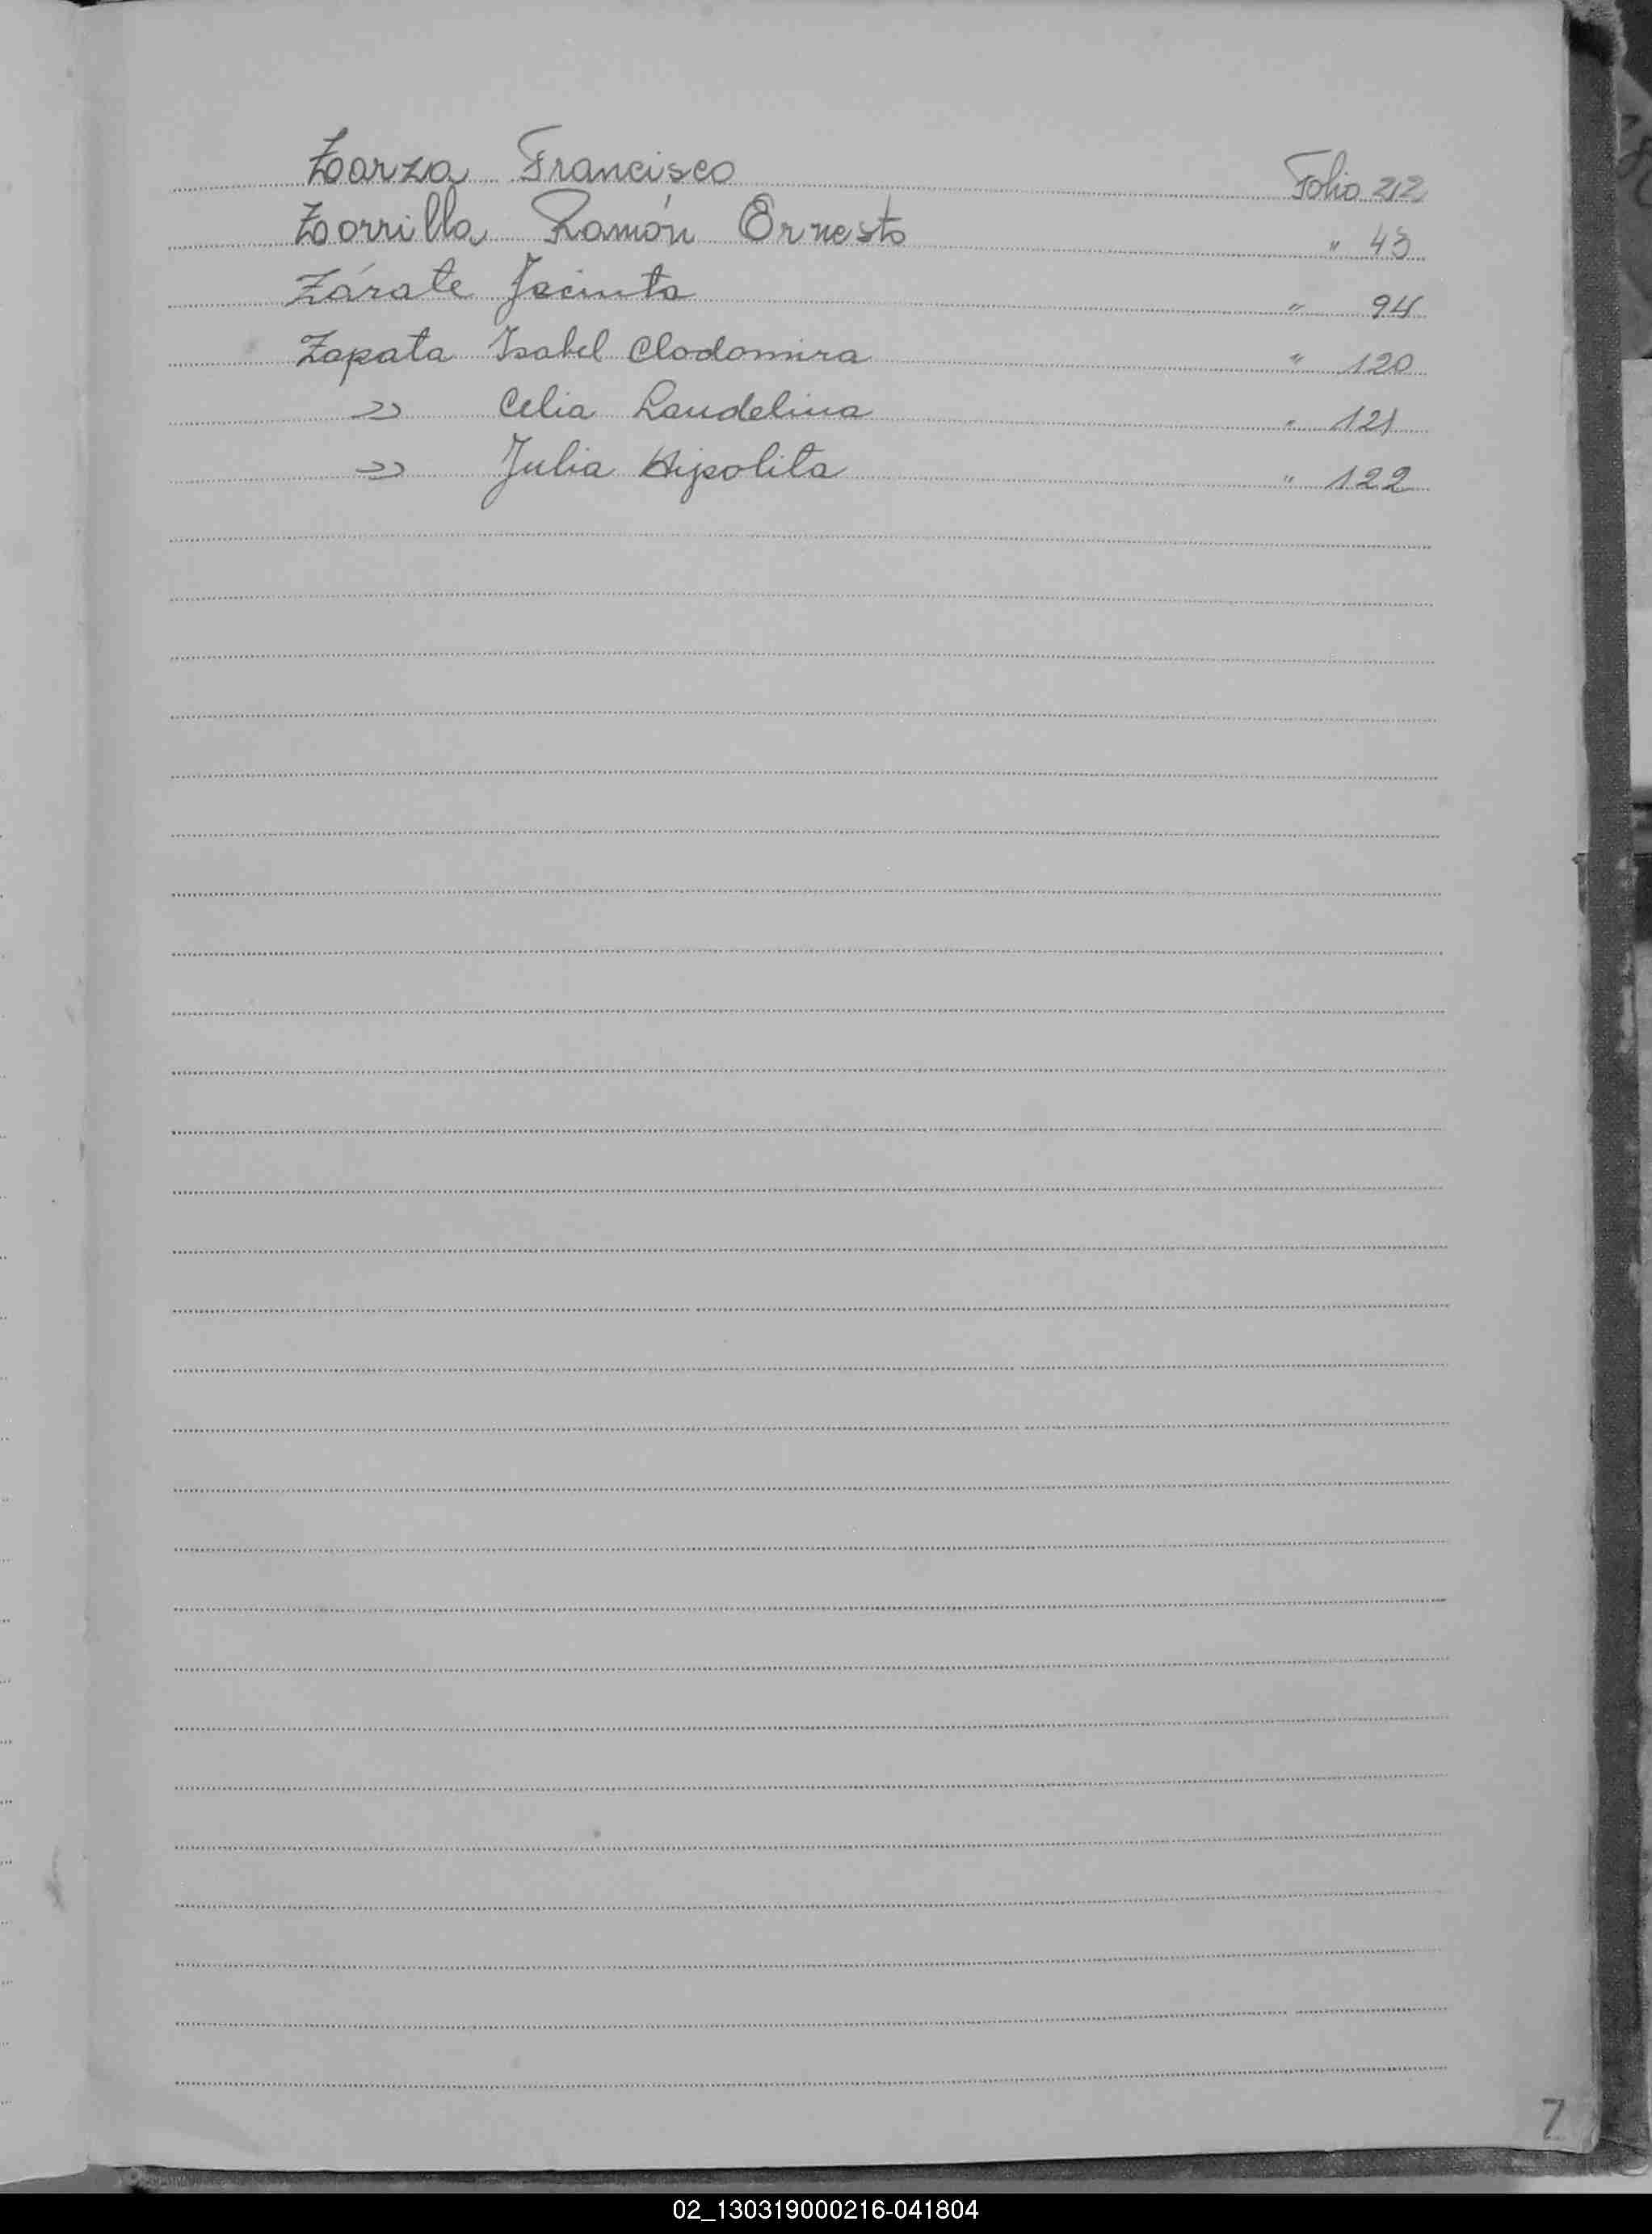 Zarza Francisco Folio 22
Zorrilla Ramón Ernesto " 43
Zárate Jacinta " 94
Zapata Isabel Clodomira " 120
" Celia Laudelina " 121
" Julia Hipolita " 122
Z
02_130319000216-041804